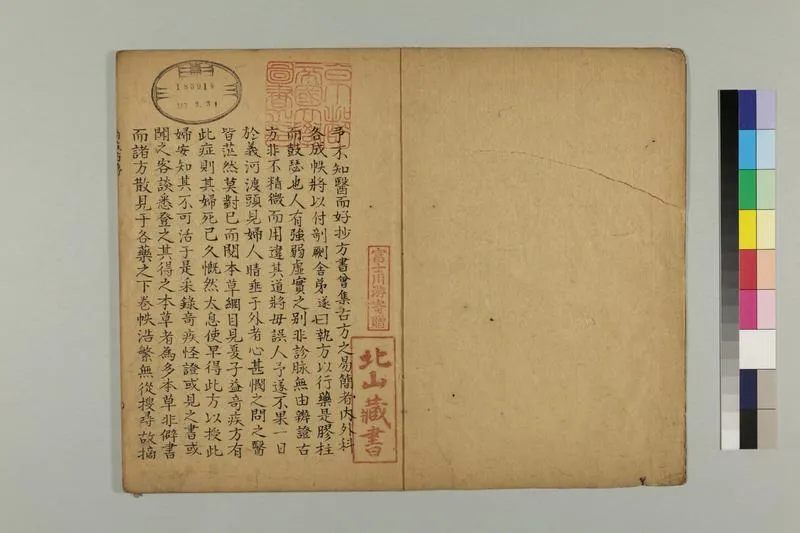 予不知醫而好抄方書曾集古方之易簡者內外科
各成帙將以付剞劂舍弟遂曰執方以行藥是膠柱
而鼓瑟也人有強弱虛實之別非診脉無由辨證古
方非不精微而用違其道將毋誤人予遂不果一日
於義河渡頭見婦人睛垂于外者心甚憫之問之醫
皆茫然莫對已而閱本草綱目見夏子益奇疾方有
此症則其婦死已久慨然太息使早得此方以授此
婦安知其不可活于是采錄奇疾怪證或見之書或
聞之客談悉登之其得之本草者為多本草非僻書
而諸方散見于各藥之下卷帙浩繁無從搜尋故摘
京都
帝國大學
圖書之印
富士川游寄贈
北山藏書
189019